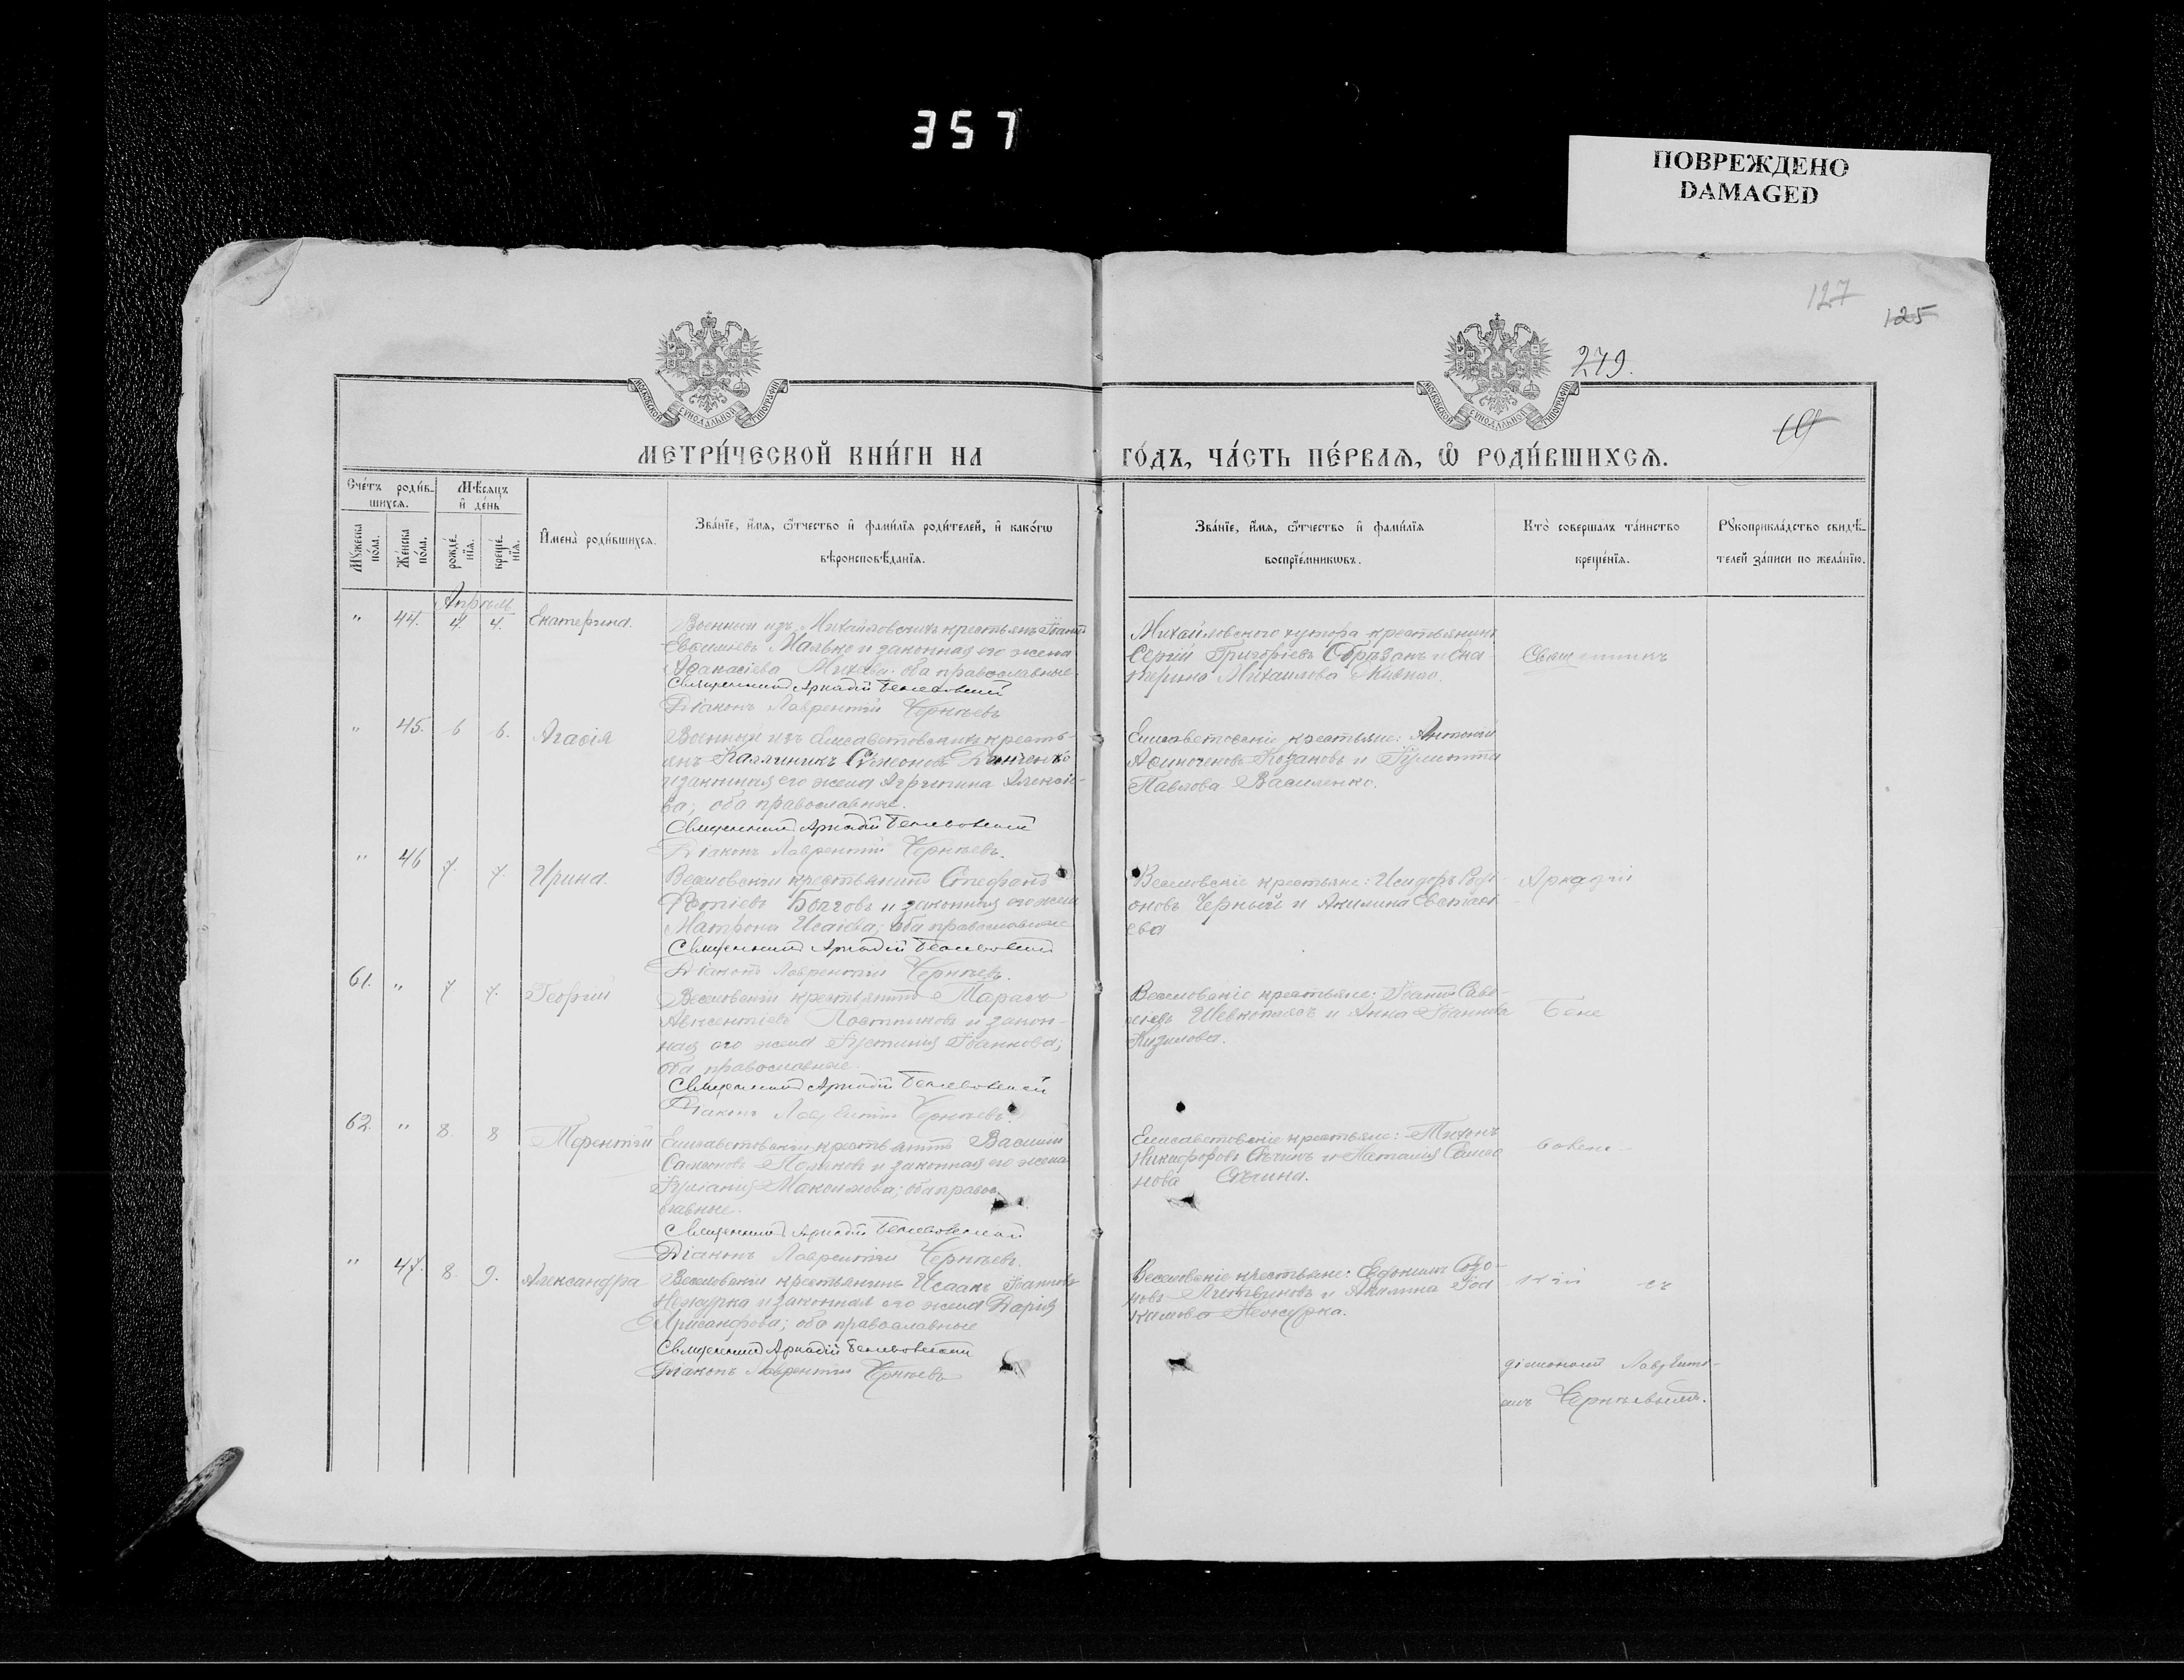 357
ПОВРЕЖДЕНО
DAMAGED
127
125
279.
МОСКОВСКОЙ СѴНОДАЛЬНОЙ ТИПОГРАФІИ
МОСКОВСКОЙ СѴНОДАЛЬНОЙ ТИПОГРАФІИ
МЕТРИ́ЧЕСКОЙ КНИ́ГИ НА ГО́ДЪ, ЧА́СТЬ ПЕ́РВАѦ, Ѡ РОДИ́ВШИХСѦ.
Сче́тъ роди́вшихсѧ.
Мꙋ́жеска по́ла.
Же́нска по́ла.
Мѣ́сѧцъ и҆ де́нь
рожде́нїѧ.
креще́нїѧ.
И҆мена̀ роди́вшихсѧ.
Зва́нїе, и҆́мѧ, ѻ҆́тчество и҆ фами́лїѧ роди́телей, и҆ како́гѡ
вѣроисповѣ́данїѧ.
Зва́нїе, и҆́мѧ, ѻ҆́тчество и҆ фами́лїѧ
воспрїе́мникѡвъ.
Кто̀ соверша́лъ та́инство
креще́нїѧ.
Рꙋкоприкла́дство свидѣ́-
телей за́писи по жела́нїю.
Апрѣль
" 44. 4. 4. Екатерина.
Военный изъ Михайловскихъ крестьянъ Іоаннъ
Малько и законная его жена
Аѳанасіева оба православные.
Священникъ Аркадій Бенебовскій
Діаконъ Лаврентій Чернѣевъ
Михайловского хутора крестьянинъ
Сергій Григоріевъ Обрѣзанъ и Ека
терина Михаилова
Священникъ
" 45. 6 6. Агаѳія
Военный изъ Елисаветовскихъ кресть-
янъ Каллиникъ Сѵмеоновъ
и законная его жена Агриппина Алексѣ-
ва; оба православные.
Священникъ Аркадій Бенебовскій
Діаконъ Лаврентій Чернѣевъ.
Елисаветовскіе крестьяне: Антоній
Козаковъ и Іулитта
Павлова Василенко.
" 46 7. 7. Ирина.
Веселовскій крестьянинъ Стефанъ
Фотіевъ Болговъ и законная его жена
Матрона Исаіева; оба православные
Священникъ Аркадій Бенебовскій
Діаконъ Лаврентій Чернѣевъ.
Веселовскіе крестьяне: Исидоръ Роді-
оновъ Черный и Акилина Евстаѳі-
ева
Аркадій
61. " 7 7. Георгій
Веселовскій крестьянинъ Тарасъ
Авксентіевъ Постниковъ и закон-
ная его жена Іустинія Іоаннова;
оба православные.
Священникъ Аркадій Бенебовскій
Діаконъ Лаврентій Чернѣевъ
Веселовскіе крестьяне: Іоаннъ Саве-
ліевъ Шевкоплясъ и Анна Іоаннова
Бене
62. " 8. 8 Терентій
Елисаветовскій крестьянинъ Василій
Самсоновъ Поляковъ и законная его жена
Іуліанія Максимова; оба право
славные.
Священникъ Аркадій Бенебовскій
Діаконъ Лаврентій Чернѣевъ.
Елисаветовскіе крестьяне: Тихонъ
Никифоровъ и Наталія Самсо
нова
" 47. 8. 9. Александра
Веселовскій крестьянинъ Исаакъ Іоанновъ
Нежурка и законная его жена Дарія
Хрисанфова; оба православные
Священникъ Аркадій Бенебовскій
Діаконъ Лаврентій Чернѣевъ
Веселовскіе крестьяне: Евдокимъ Созо-
новъ Литвиновъ и Акилина Іоа
кимова Нежурка.
кій съ
діакономъ Лавренті-
емъ Чернѣевымъ.